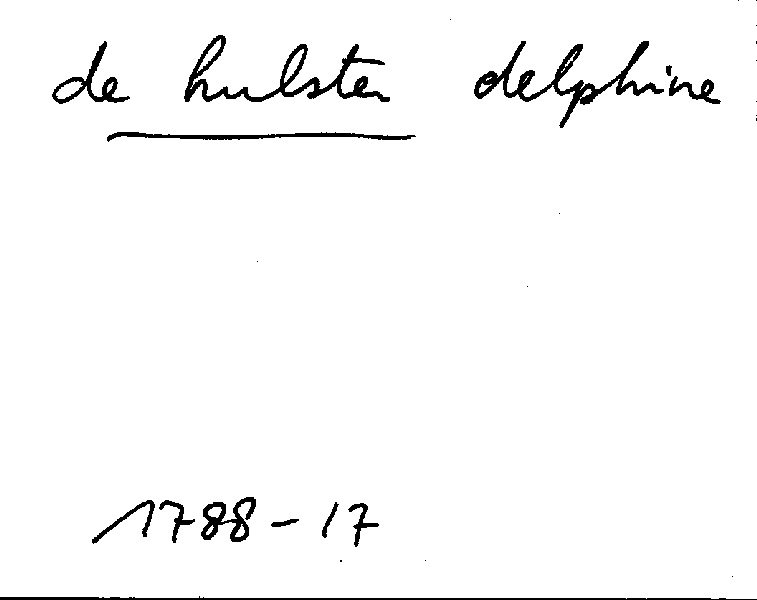 de hulster delphine
1788-17